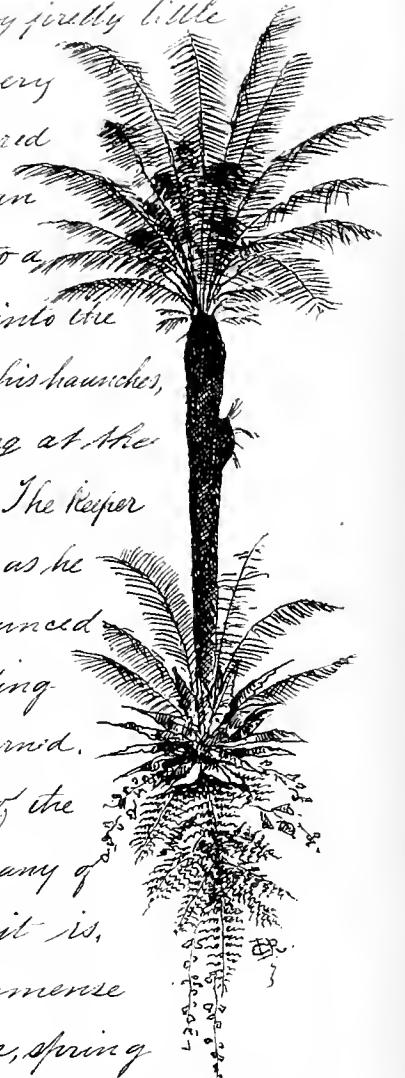 y pretty little
ery
red
an
to a
into the
his haunches,
g at the
The Keeper
as he
unced
ling
rned.
of the
any of
it is,
mmense
r, spring